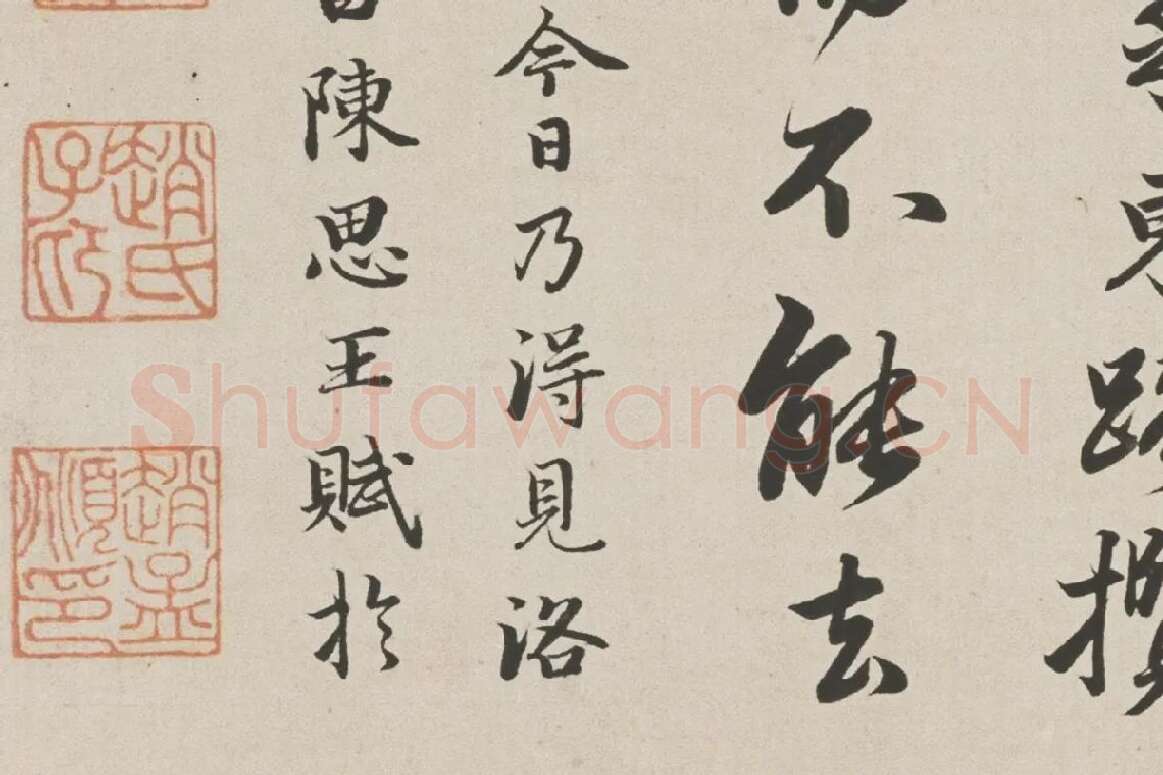 東路攬
不能去
今日乃得見洛
陳思王賦於
趙氏子昂
趙孟頫印
Shufawang.CN